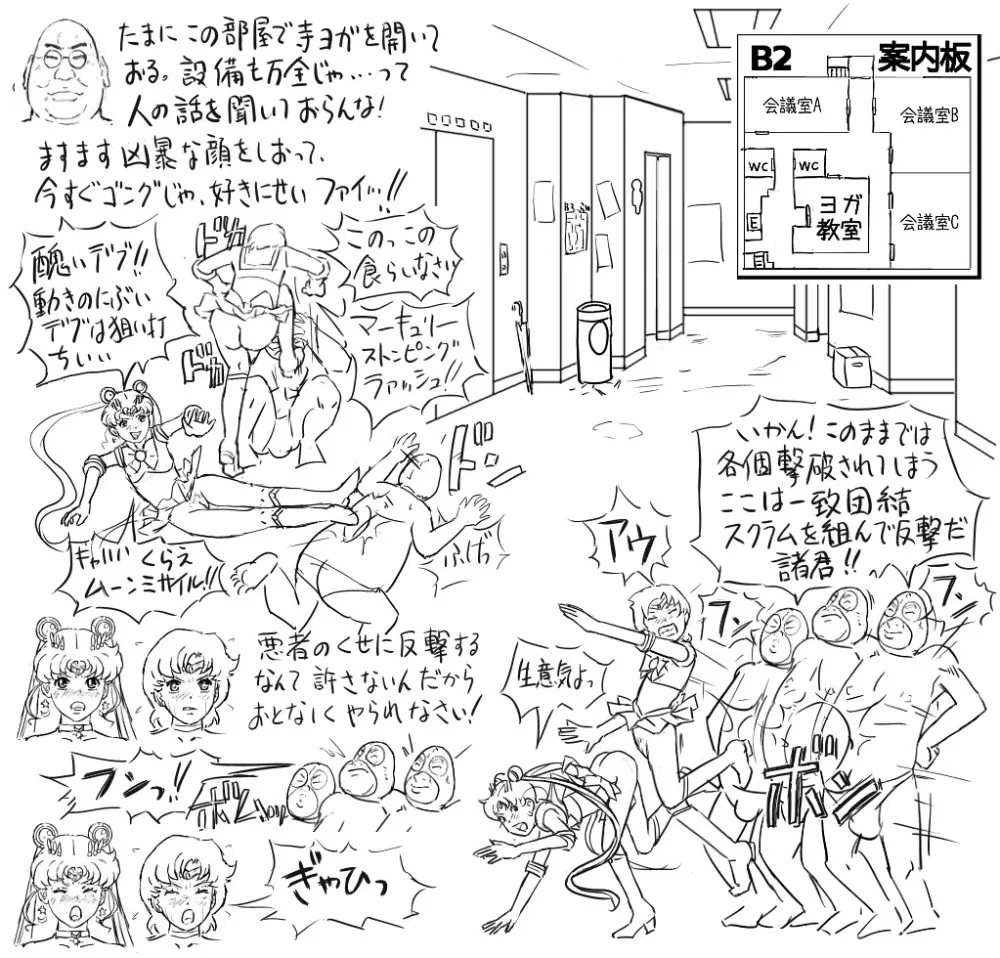 たまにこの部屋で寺ヨガを開いて
おる。設備も万全じゃ…って
人の話を聞いておらんな!
ますます凶暴な顔をしおって、
今すぐゴングじゃ、好きにせい ファイッ!!
B2
案内板
会議室A
会議室B
WC
WC
ヨガ
教室
会議室C
E
E
醜いデブ!!
動きのにぶい
デブは狙い打
ちぃぃ
ドカ
ドカ
このっこの
食らいなさい
マーキュリー
ストンピング
ラァッシュ!!
ドン
ふげっ
キャハハ くらえ
ムーンミサイル!!
いかん!このままでは
各個撃破されてしまう
ここは一致団結
スクラムを組んで反撃だ
諸君!!
アウ
フン
フン
生意気よっ
悪者のくせに反撃する
なんて許さないんだから
おとなしくやられなさい!
フンっ!!
ボヨ
ボ
ぎゃひっ